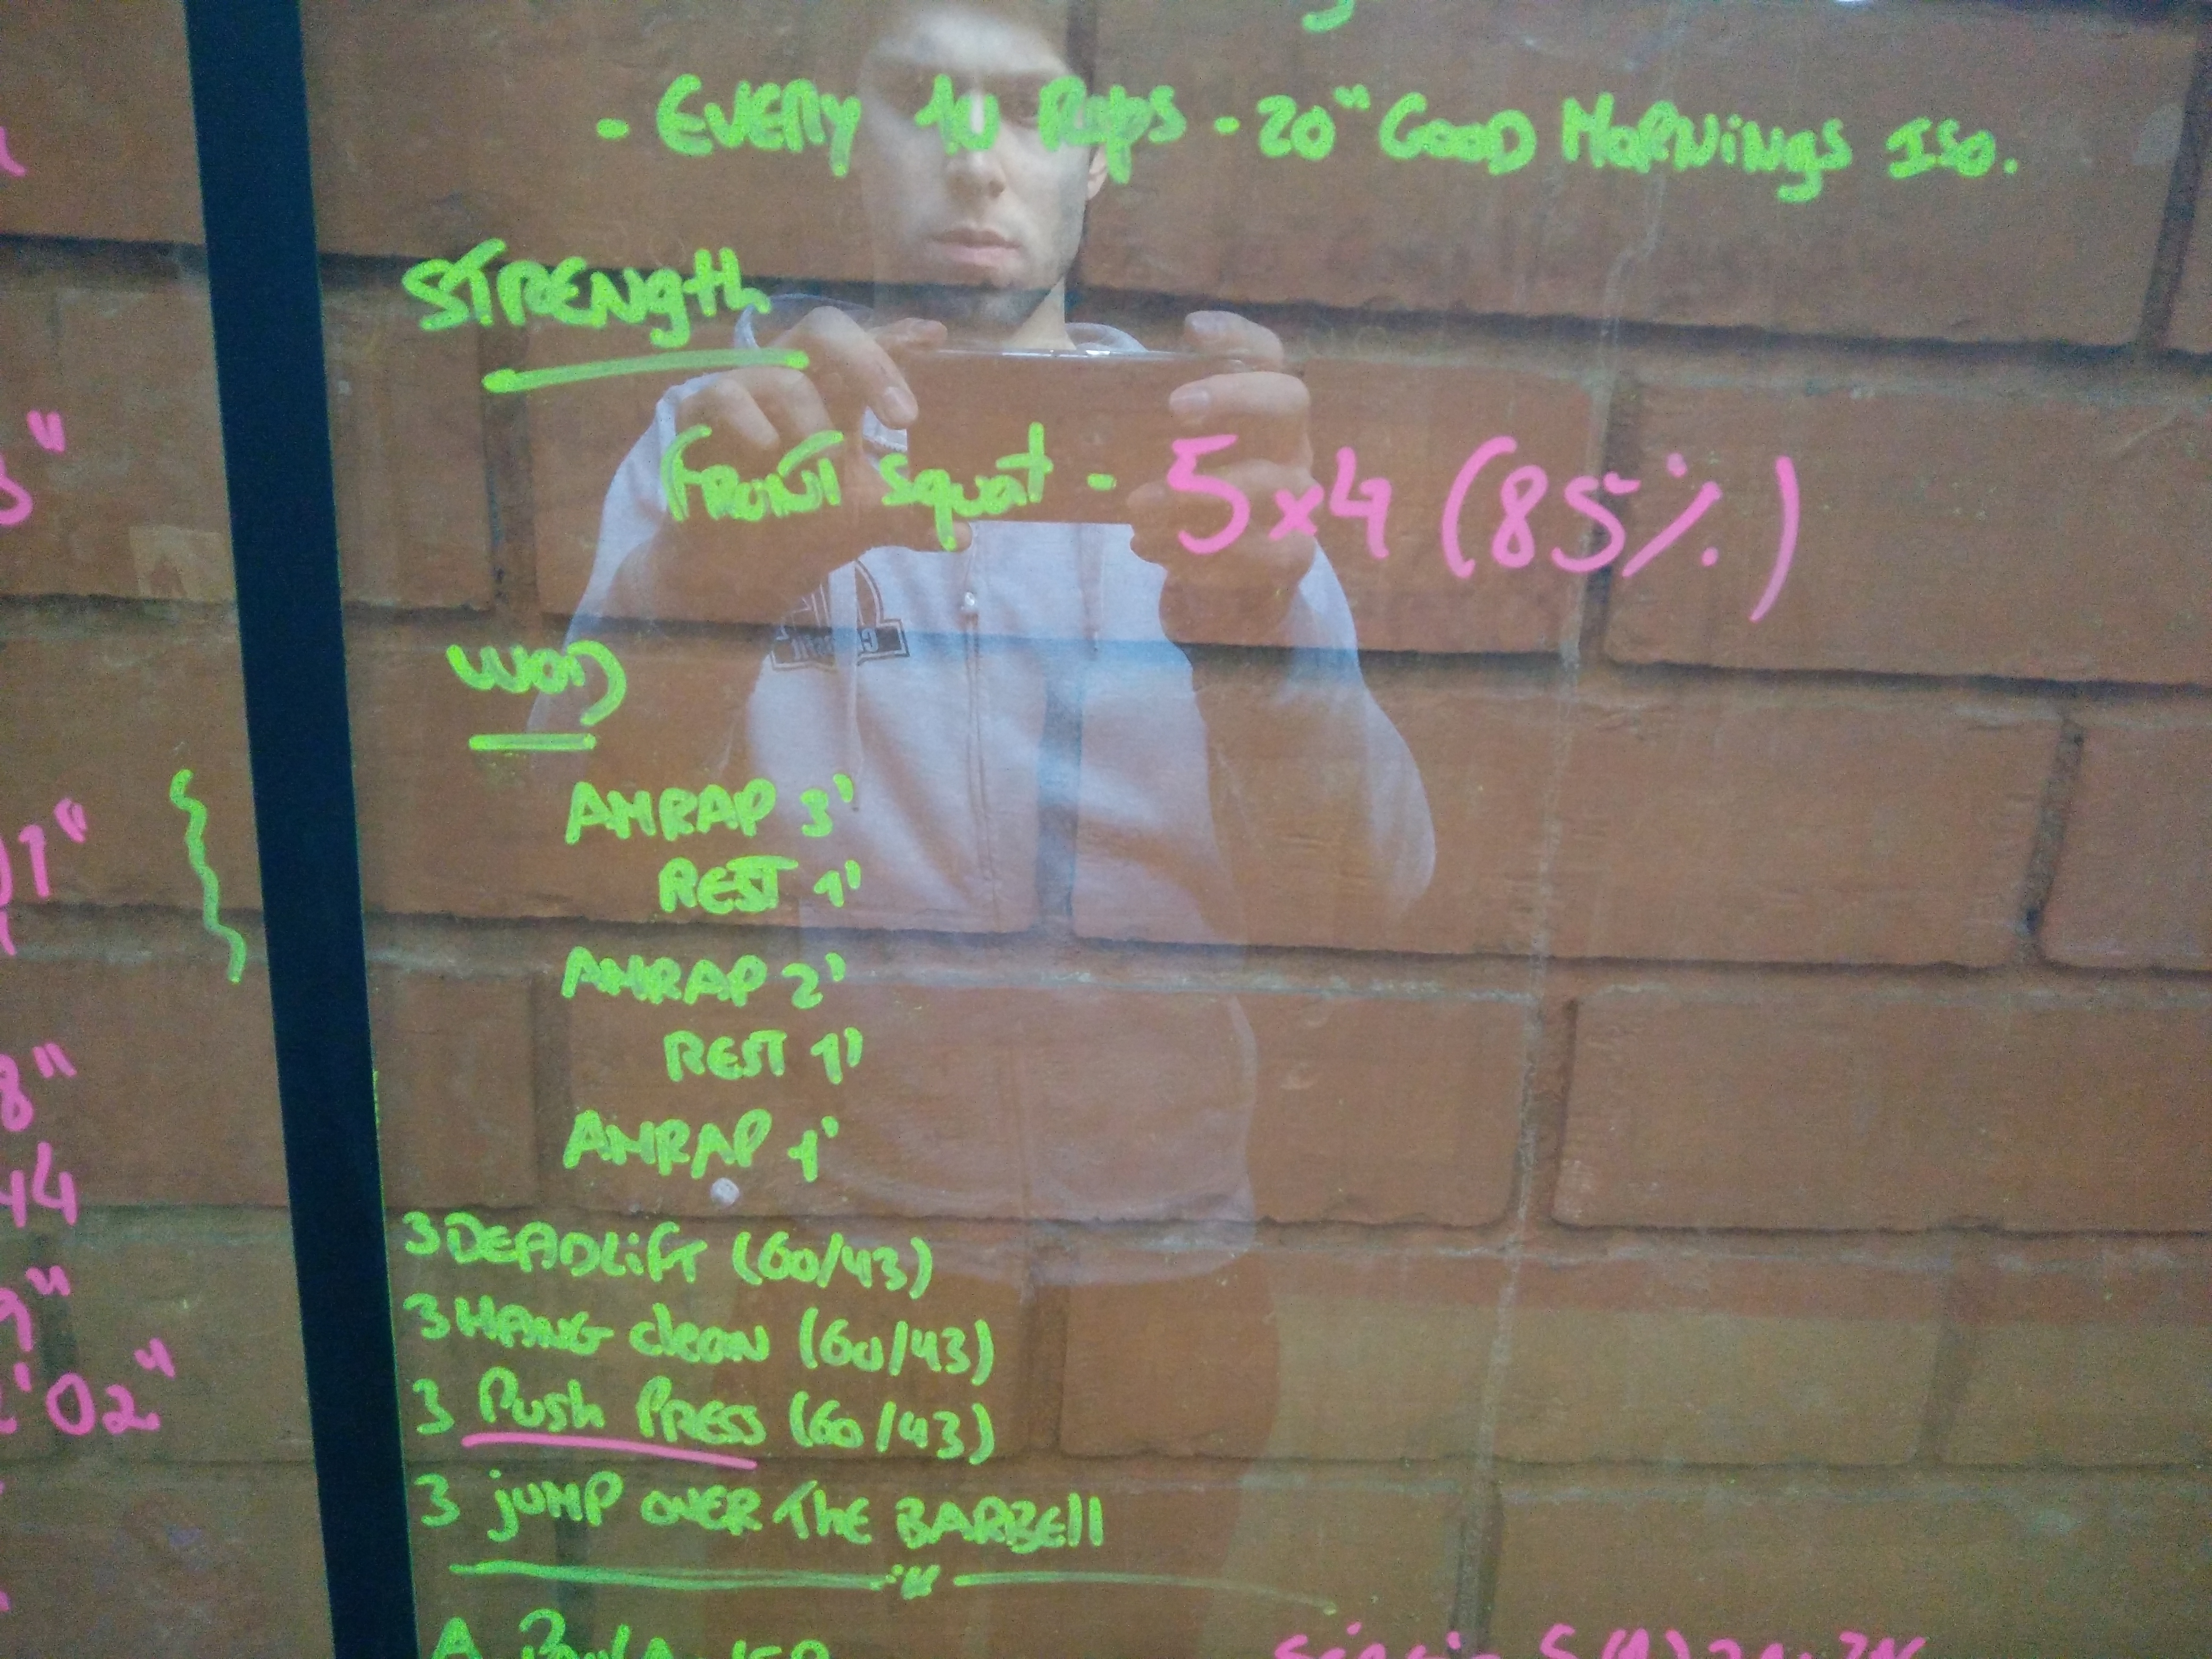 - EVERY 10 Reps - 20" GOOD MORNINGS ISO.
STRENgth
FRONT Squat - 5x4 (85%)
WOD
AMRAP 3'
REST 1'
AMRAP 2'
REST 1'
AMRAP 1'
3 DEADLiFT (60/43)
3 HANG clean (60/43)
3 Push PRESS (60/43)
3 jUMP OVER The BARBEll
8"
44
9"
'02"